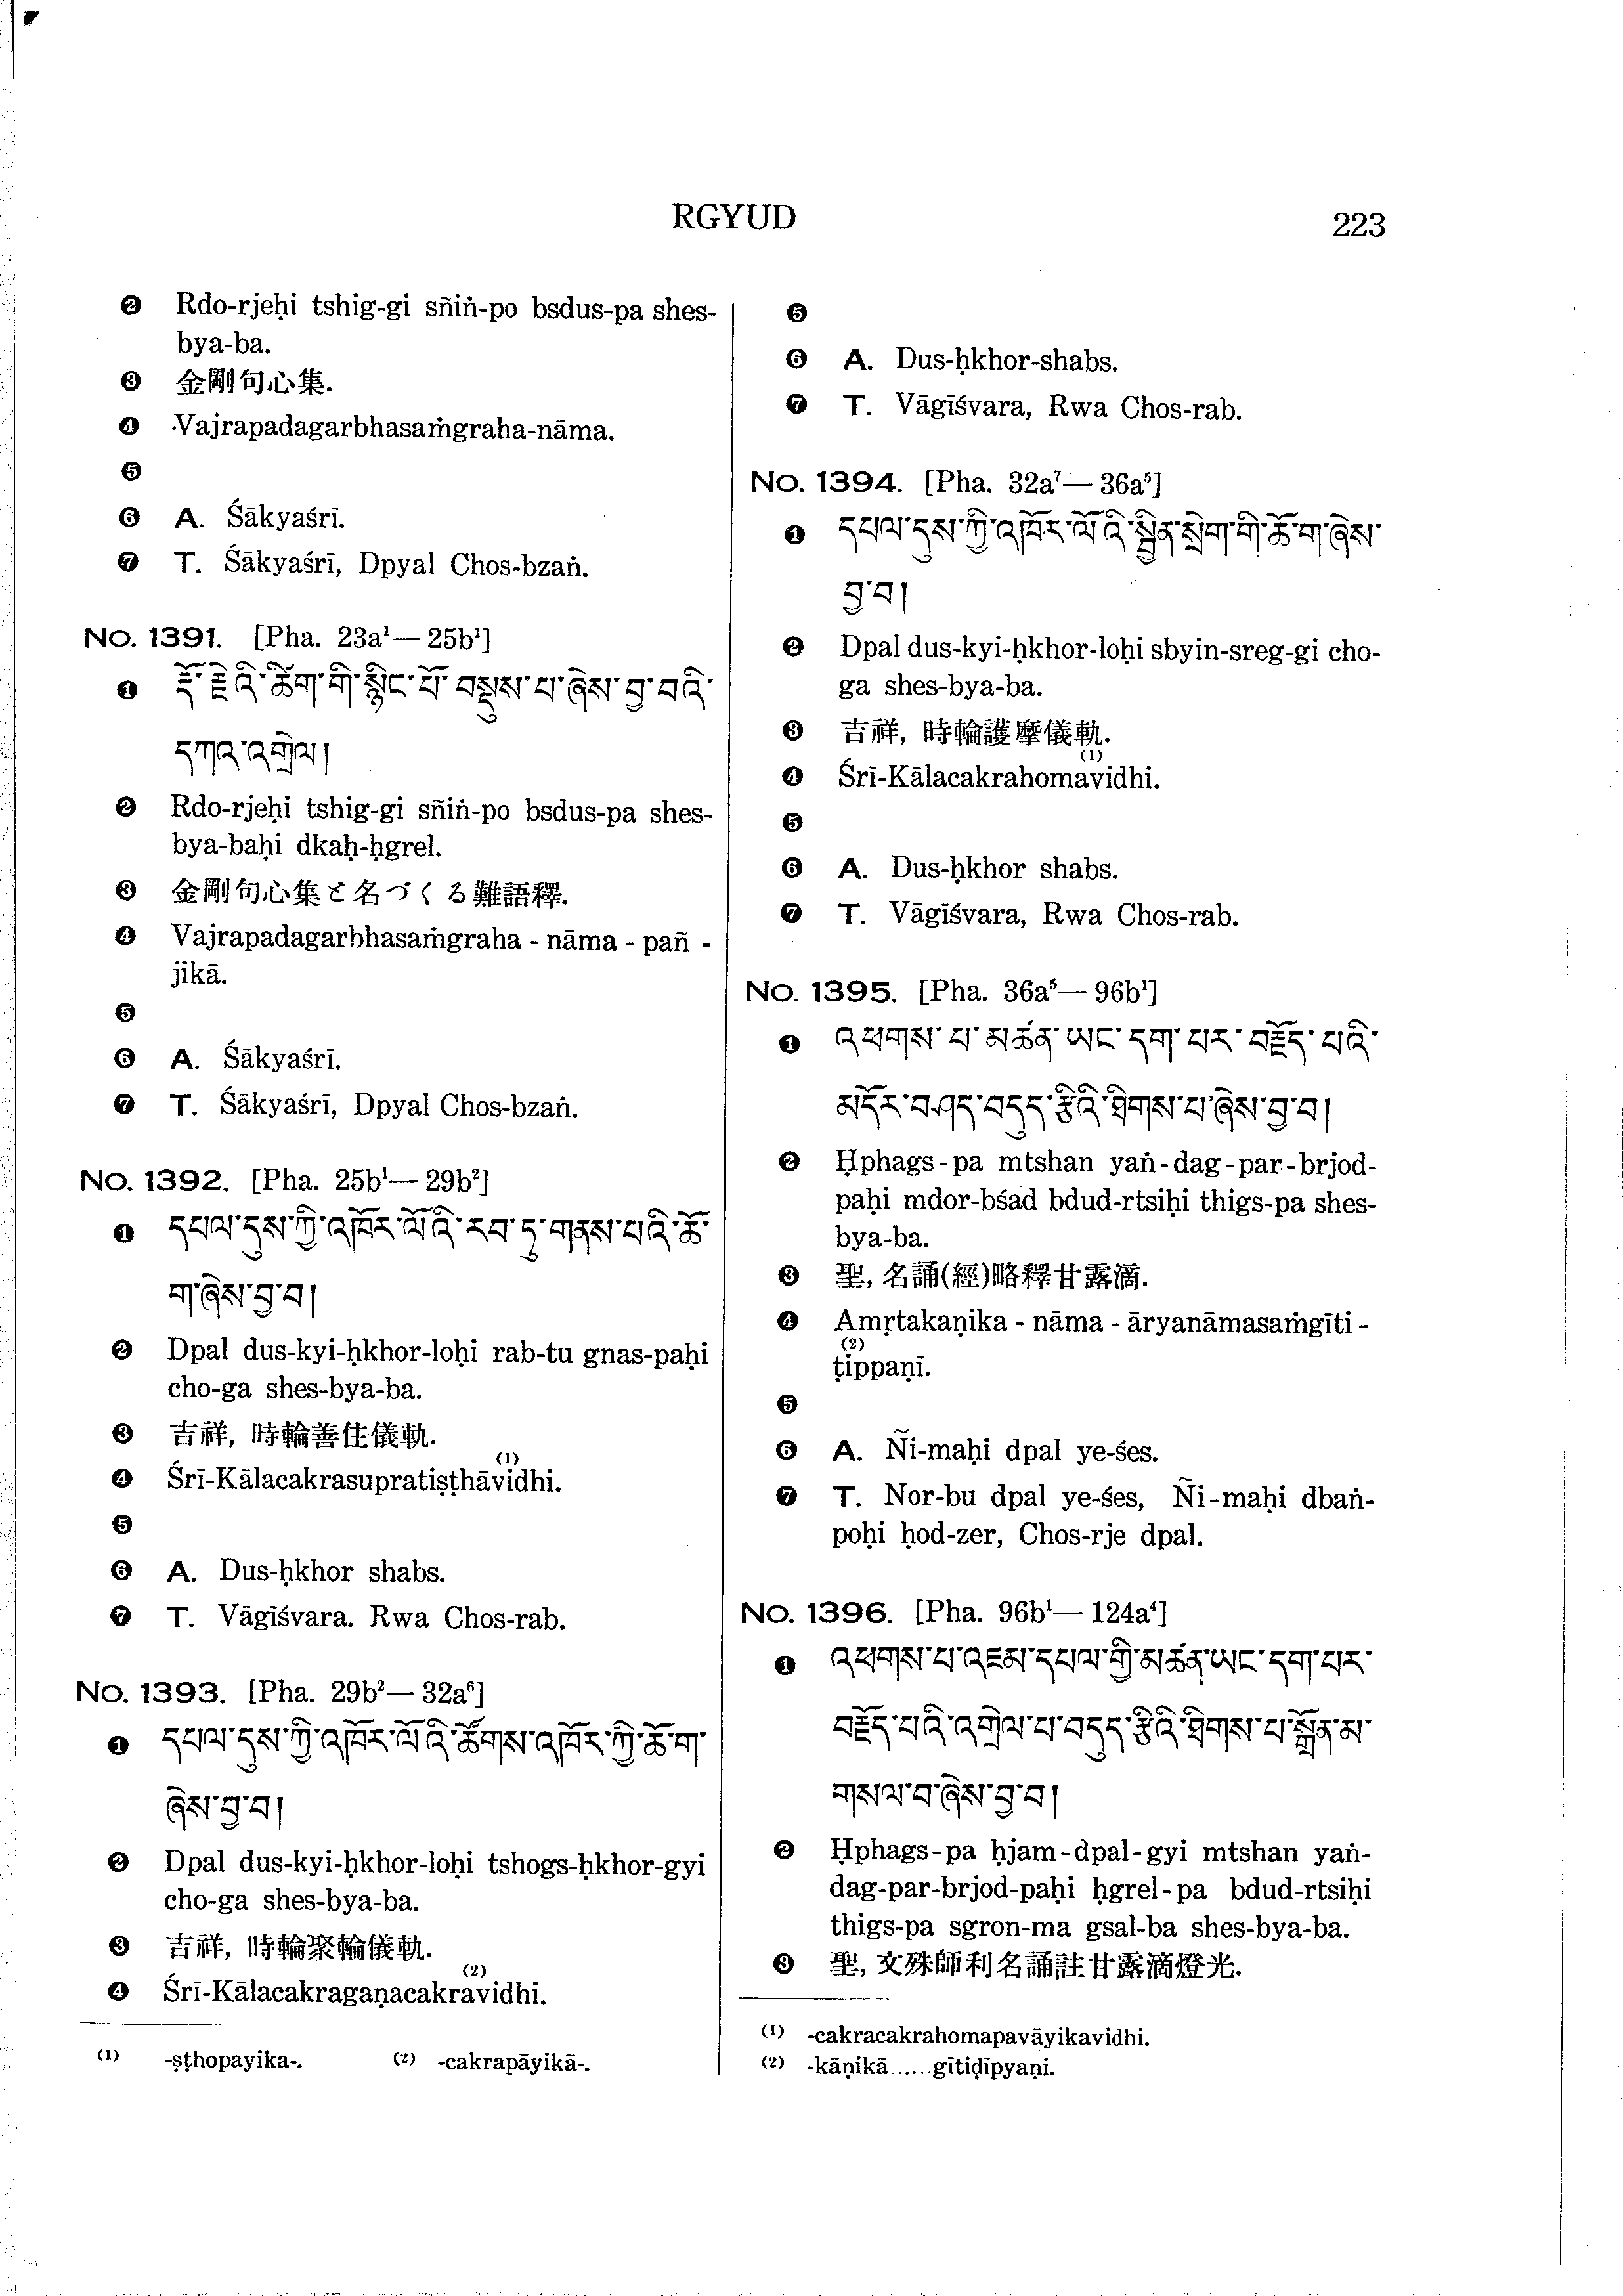 RGYUD
223
❷ Rdo-rjeḥi tshig-gi sñiṅ-po bsdus-pa shes-
bya-ba.
❸ 金剛句心集.
❹ Vajrapadagarbhasaṁgraha-nāma.
❺
❻ A. Śākyaśrī.
❼ T. Śākyaśrī, Dpyal Chos-bzaṅ.
No. 1391. [Pha. 23a¹— 25b¹]
❶ རྡོ་རྗེའི་ཚིག་གི་སྙིང་པོ་བསྡུས་པ་ཞེས་བྱ་བའི་
དཀའ་འགྲེལ།
❷ Rdo-rjeḥi tshig-gi sñiṅ-po bsdus-pa shes-
bya-baḥi dkaḥ-ḥgrel.
❸ 金剛句心集と名づくる難語釋.
❹ Vajrapadagarbhasaṁgraha - nāma - pañ -
jikā.
❺
❻ A. Śākyaśrī.
❼ T. Śākyaśrī, Dpyal Chos-bzaṅ.
No. 1392. [Pha. 25b¹— 29b²]
❶ དཔལ་དུས་ཀྱི་འཁོར་ལོའི་རབ་ཏུ་གནས་པའི་ཆོ་
ག་ཞེས་བྱ་བ།
❷ Dpal dus-kyi-ḥkhor-loḥi rab-tu gnas-paḥi
cho-ga shes-bya-ba.
❸ 吉祥, 時輪善住儀軌.
❹ Śrī-Kālacakrasupratiṣṭhāvidhi.(1)
❺
❻ A. Dus-ḥkhor shabs.
❼ T. Vāgīśvara. Rwa Chos-rab.
No. 1393. [Pha. 29b²— 32a⁶]
❶ དཔལ་དུས་ཀྱི་འཁོར་ལོའི་ཚོགས་འཁོར་ཀྱི་ཆོ་ག་
ཞེས་བྱ་བ།
❷ Dpal dus-kyi-ḥkhor-loḥi tshogs-ḥkhor-gyi
cho-ga shes-bya-ba.
❸ 吉祥, 時輪聚輪儀軌.
❹ Śrī-Kālacakragaṇacakravidhi.(2)
(1) -ṣṭhopayika-. (2) -cakrapāyikā-.
❺
❻ A. Dus-ḥkhor-shabs.
❼ T. Vāgīśvara, Rwa Chos-rab.
No. 1394. [Pha. 32a⁷— 36a⁵]
❶ དཔལ་དུས་ཀྱི་འཁོར་ལོའི་སྦྱིན་སྲེག་གི་ཆོ་ག་ཞེས་
བྱ་བ།
❷ Dpal dus-kyi-ḥkhor-loḥi sbyin-sreg-gi cho-
ga shes-bya-ba.
❸ 吉祥, 時輪護摩儀軌.
❹ Śrī-Kālacakrahomavidhi.(1)
❺
❻ A. Dus-ḥkhor shabs.
❼ T. Vāgīśvara, Rwa Chos-rab.
No. 1395. [Pha. 36a⁵— 96b¹]
❶ འཕགས་པ་མཚན་ཡང་དག་པར་བརྗོད་པའི་
མདོར་བཤད་བདུད་རྩིའི་ཐིགས་པ་ཞེས་བྱ་བ།
❷ Ḥphags-pa mtshan yaṅ-dag-par-brjod-
paḥi mdor-bśad bdud-rtsiḥi thigs-pa shes-
bya-ba.
❸ 聖, 名誦(經)略釋甘露滴.
❹ Amṛtakaṇika - nāma - āryanāmasaṁgīti -
ṭippaṇī.(2)
❺
❻ A. Ñi-maḥi dpal ye-śes.
❼ T. Nor-bu dpal ye-śes, Ñi-maḥi dbaṅ-
poḥi ḥod-zer, Chos-rje dpal.
No. 1396. [Pha. 96b¹— 124a⁴]
❶ འཕགས་པ་འཇམ་དཔལ་གྱི་མཚན་ཡང་དག་པར་
བརྗོད་པའི་འགྲེལ་པ་བདུད་རྩིའི་ཐིགས་པ་སྒྲོན་མ་
གསལ་བ་ཞེས་བྱ་བ།
❷ Ḥphags-pa ḥjam-dpal-gyi mtshan yaṅ-
dag-par-brjod-paḥi ḥgrel-pa bdud-rtsiḥi
thigs-pa sgron-ma gsal-ba shes-bya-ba.
❸ 聖, 文殊師利名誦註甘露滴燈光.
(1) -cakracakrahomapavāyikavidhi.
(2) -kāṇikā......gītiḍīpyaṇi.